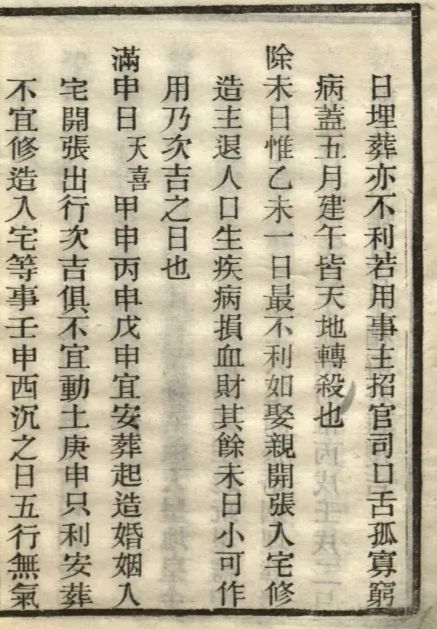 日埋葬亦不利若用事主招官司口舌孤寡窮
病蓋五月建午皆天地轉殺也
除未日惟乙未一日最不利如娶親開張入宅修
造主退人口生疾病損血財其餘未日小可作
用乃次吉之日也
滿申日天喜甲申丙申戊申宜安葬起造婚姻入
宅開張出行次吉俱不宜動土庚申只利安葬
不宜修造入宅等事壬申西沉之日五行無氣